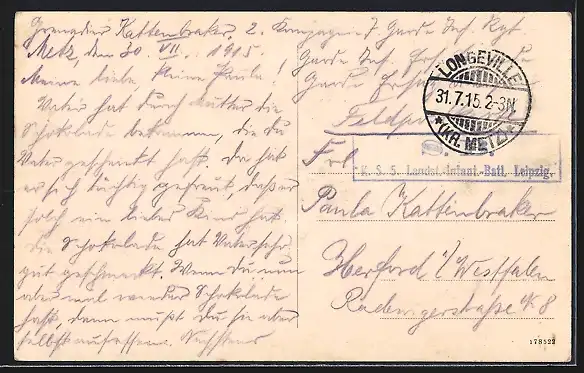 Grenadier Kattenbraker, 2. Kompagnie 7 Garde Inf. Rgt.
Metz, den 30. VII. 1915. Garde Inf.
Meine liebe, kleine Paula! Garde
Vater hat durch Mutter die
Schokolade bekomme, die du
Vater geschenkt hast. Da hat
er sich tüchtig gefreut, daß er
solch ein liebes Kind hat.
Die Schokolade hat Vater sehr
gut geschmeckt. Wenn du nun
aber mal wieder Schokolade
hast, dann mußt du sie aber
selbst aufessen.
LONGEVILLE
31.7.15. 2-3N
*(KR. METZ)*
Frl
K. S. 5. Landst.-Infant.-Batl. Leipzig.
Paula Kattenbraker
Herford i/Westfalen
Radewigerstraße № 8
178522